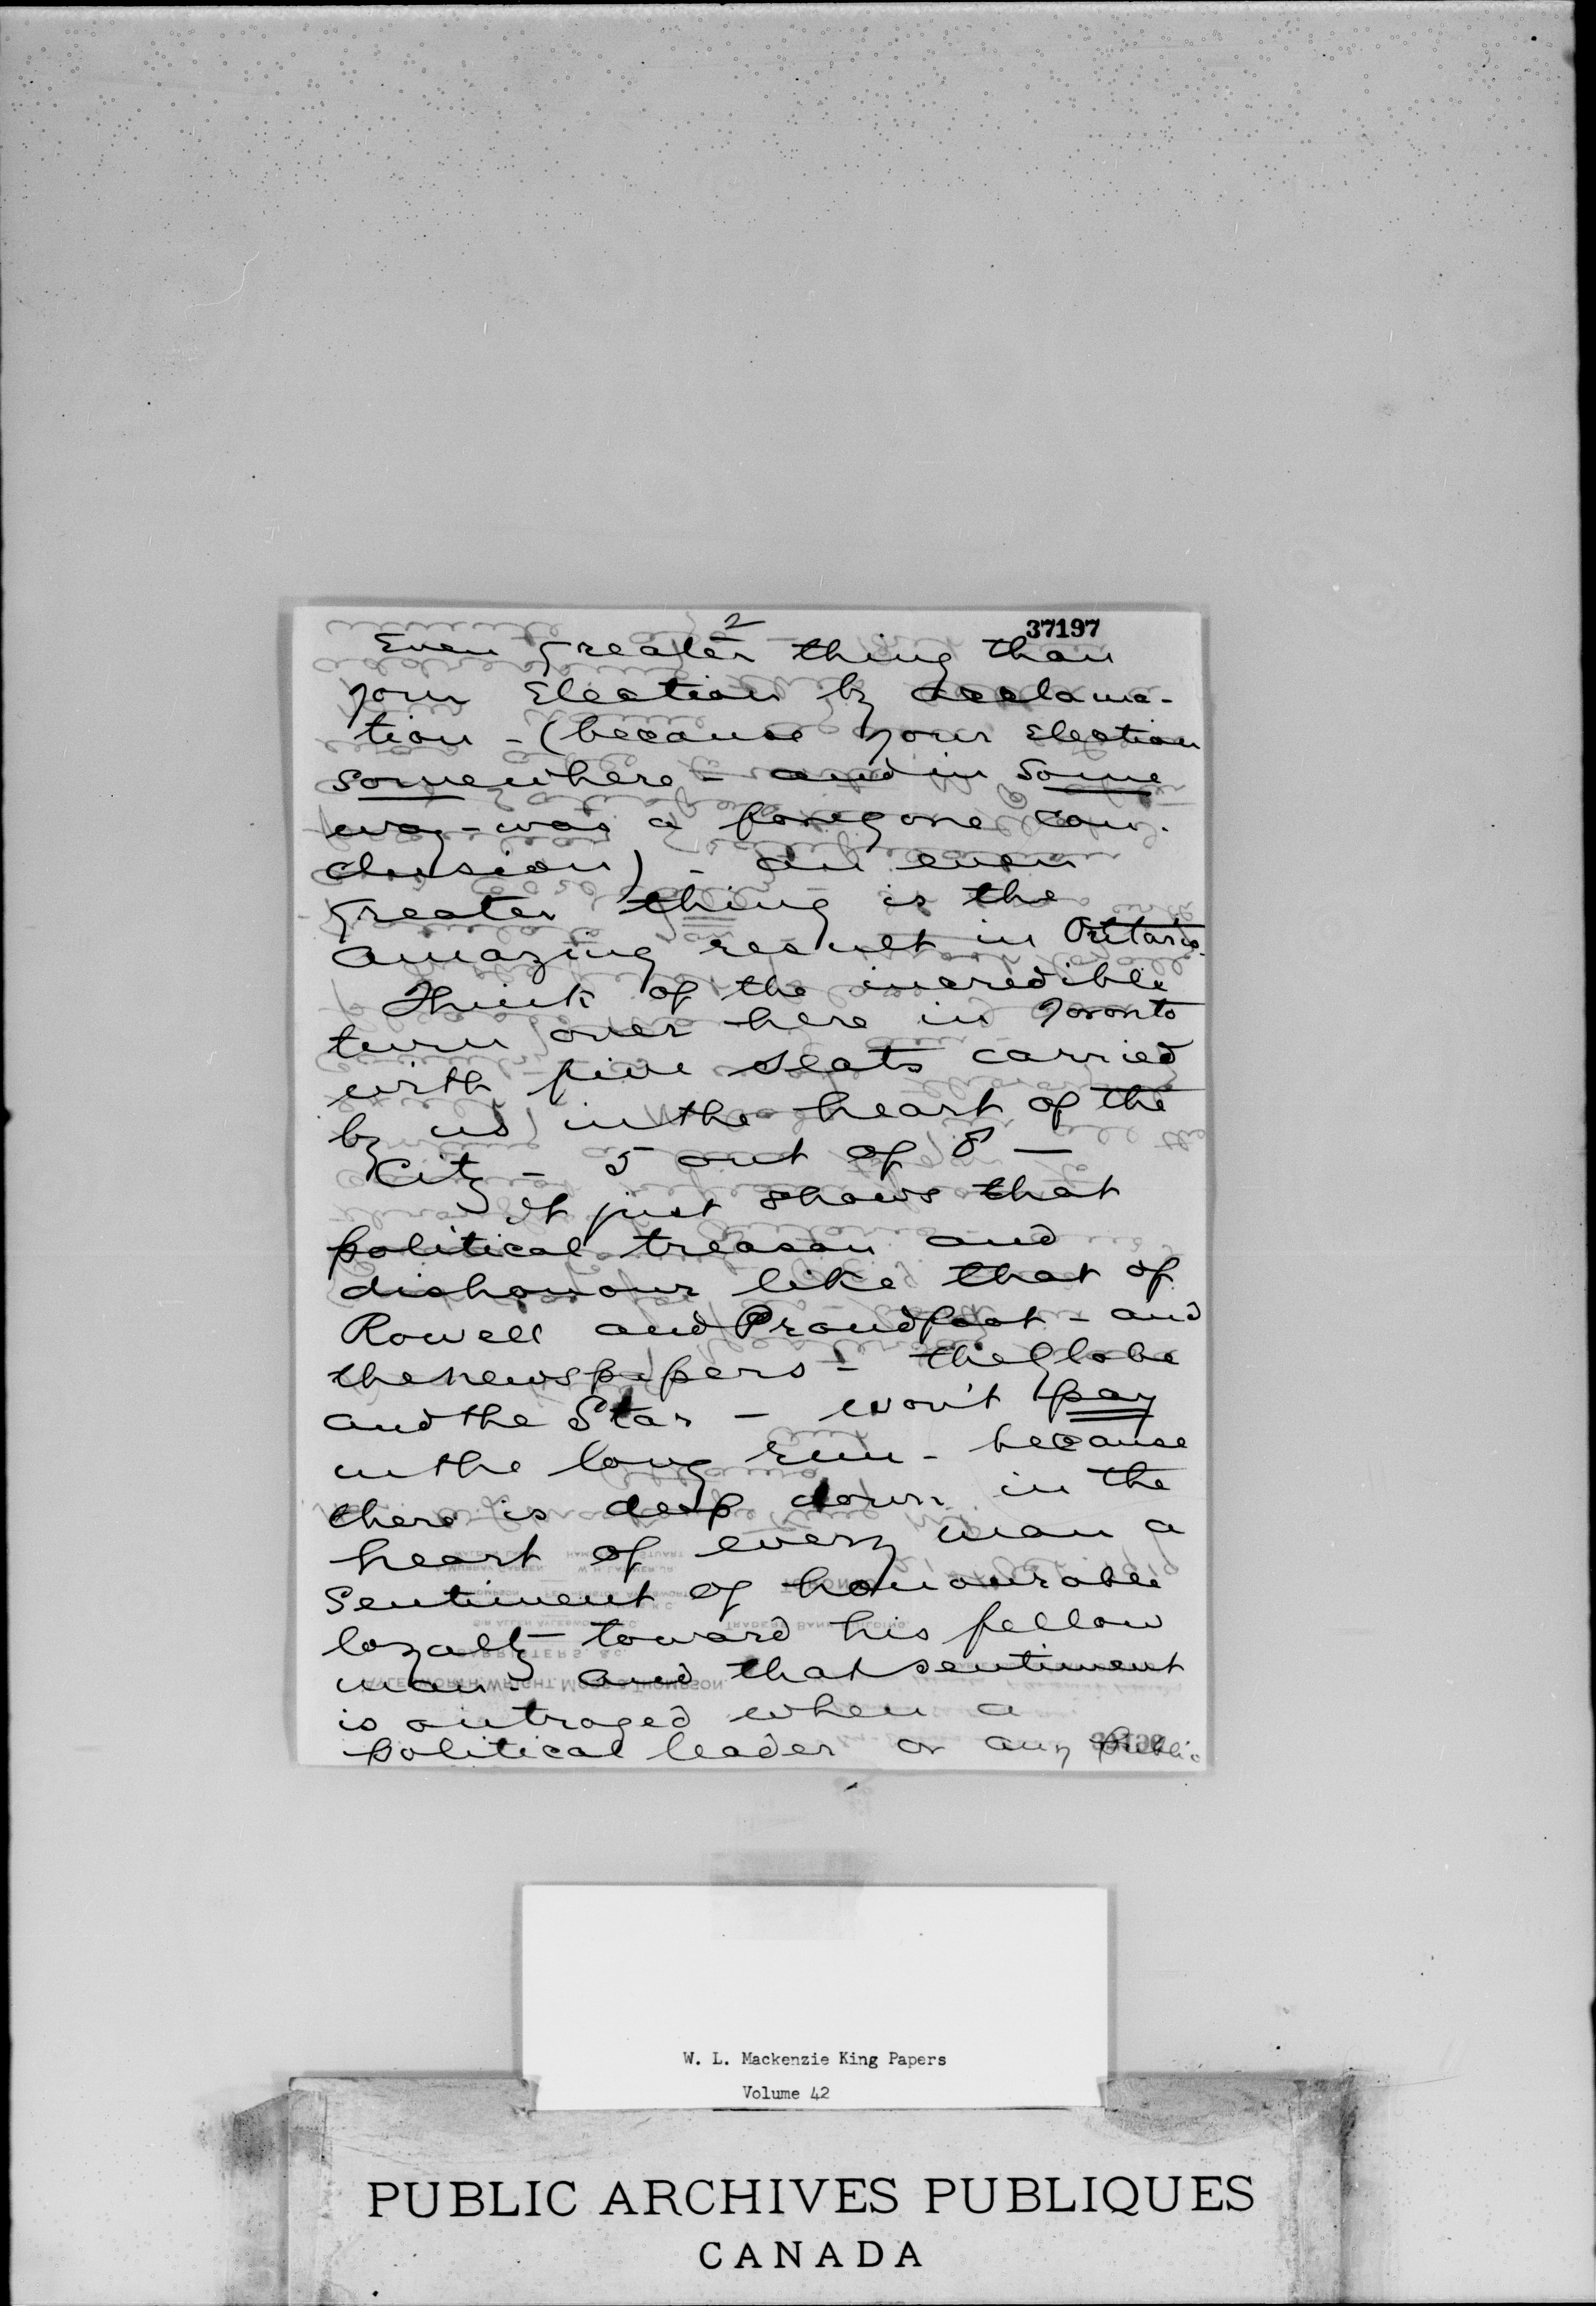 2
37197
Even greater thing than
your Election by acclama-
tion - (because your Election
somewhere - and in some
way - was a foregone con-
clusion) - an even
greater thing is the
amazing result in Ontario.
Think of the incredible
turn over here in Toronto
with five seats carried
by us in the heart of the
City - 5 out of 8 -
It just shows that
political treason and
dishonour like that of
Rowell and Proudfoot - and
the newspapers - the Globe
and the Star - won't pay
in the long run - because
there is deep down in the
heart of every man a
sentiment of honourable
loyalty toward his fellow
man - and that sentiment
is outraged when a
political leader or any public
W. L. Mackenzie King Papers
Volume 42
PUBLIC ARCHIVES PUBLIQUES
CANADA